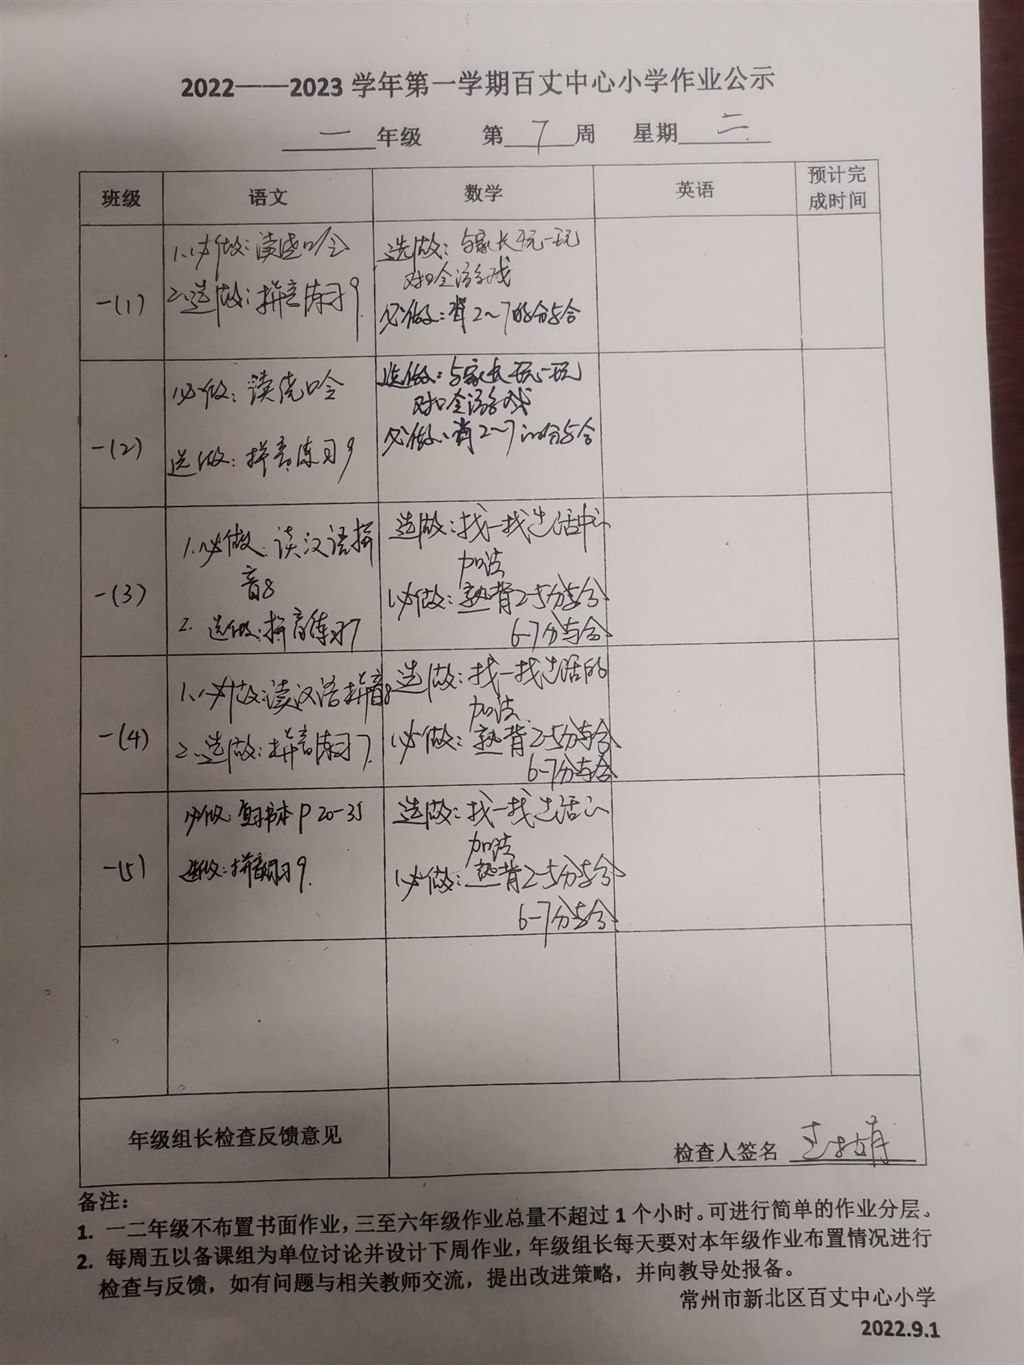 2022——2023学年第一学期百丈中心小学作业公示
一年级 第7周 星期二
班级 语文 数学 英语 预计完
成时间
一(1)
1.必做：读绕口令
2.选做：拼音练习9.
选做：与家长玩一玩
对口令游戏
必做：背2~7的分与合
一(2)
必做：读绕口令
选做：拼音练习9
选做：与家长玩一玩
对口令游戏
必做：背2~7的分与合
一(3)
1.必做：读汉语拼
音8
2. 选做：拼音练习7
选做：找一找生活中的
加法
必做：熟背2-5分与合
6-7分与合
一(4)
1.必做：读汉语拼音8
2.选做：拼音练习7.
选做：找一找生活的
加法.
必做：熟背2-5分与合
6-7分与合
一(5)
必做：复习书本P20-35
选做：拼音练习9.
选做：找一找生活的
加法
必做：熟背2-5分与合
6-7分与合
年级组长检查反馈意见
检查人签名
备注：
1. 一二年级不布置书面作业，三至六年级作业总量不超过1个小时。可进行简单的作业分层。
2. 每周五以备课组为单位讨论并设计下周作业，年级组长每天要对本年级作业布置情况进行
检查与反馈，如有问题与相关教师交流，提出改进策略，并向教导处报备。
常州市新北区百丈中心小学
2022.9.1